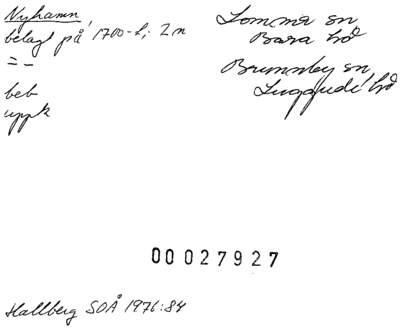 Nyhamn,
belagt på 1700-t; 2 m
= -
beb
uppk
Lomma sn
Bara hd
Brunnby sn
Luggude hd
00027927
Hallberg SOÅ 1976:84